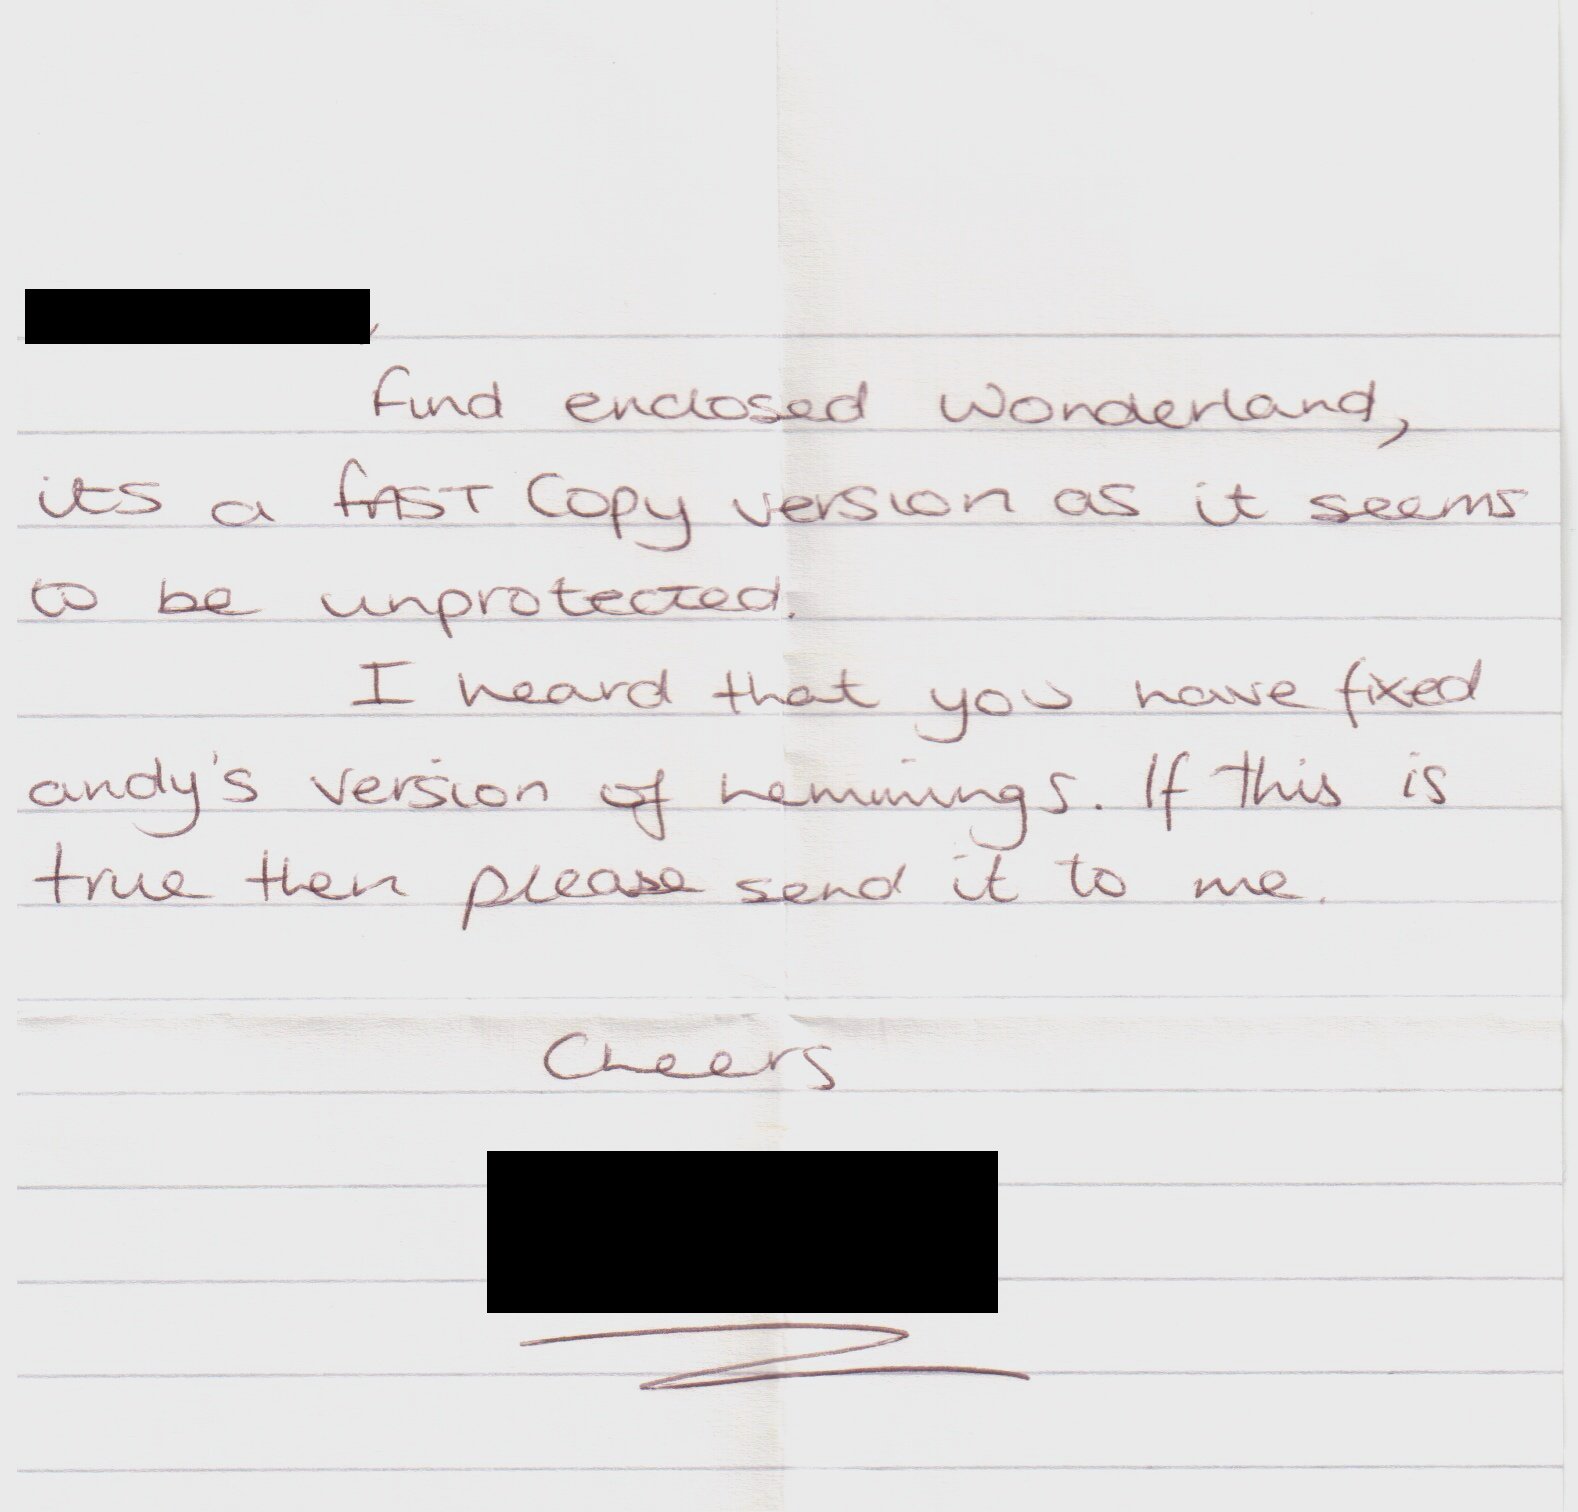 find enclosed Wonderland,
its a fAST Copy version as it seems
to be unprotected.
I heard that you have fixed
andy's version of hemmings. If this is
true then please send it to me.
Cheers